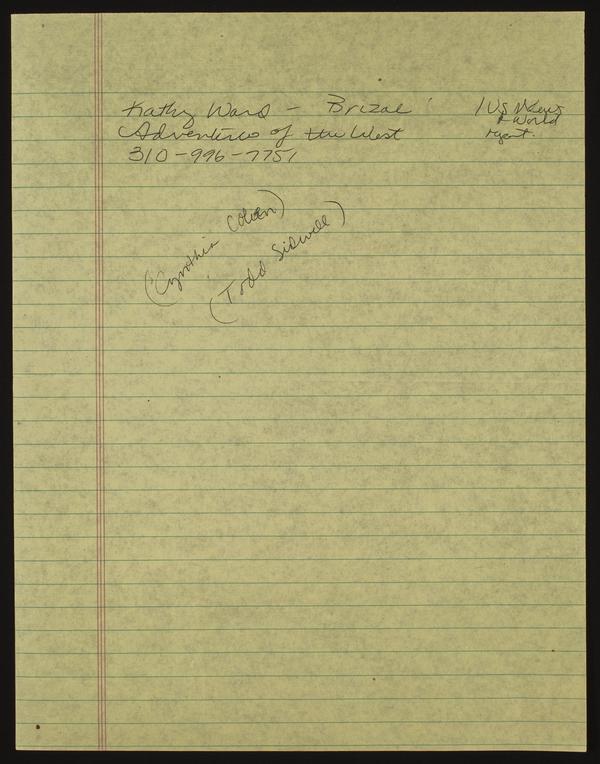 Kathy Ward - Brizal
Adventures of the West
310-996-7751
/US News
& World
(Cynthia Cohen)
(Todd Sidwell)